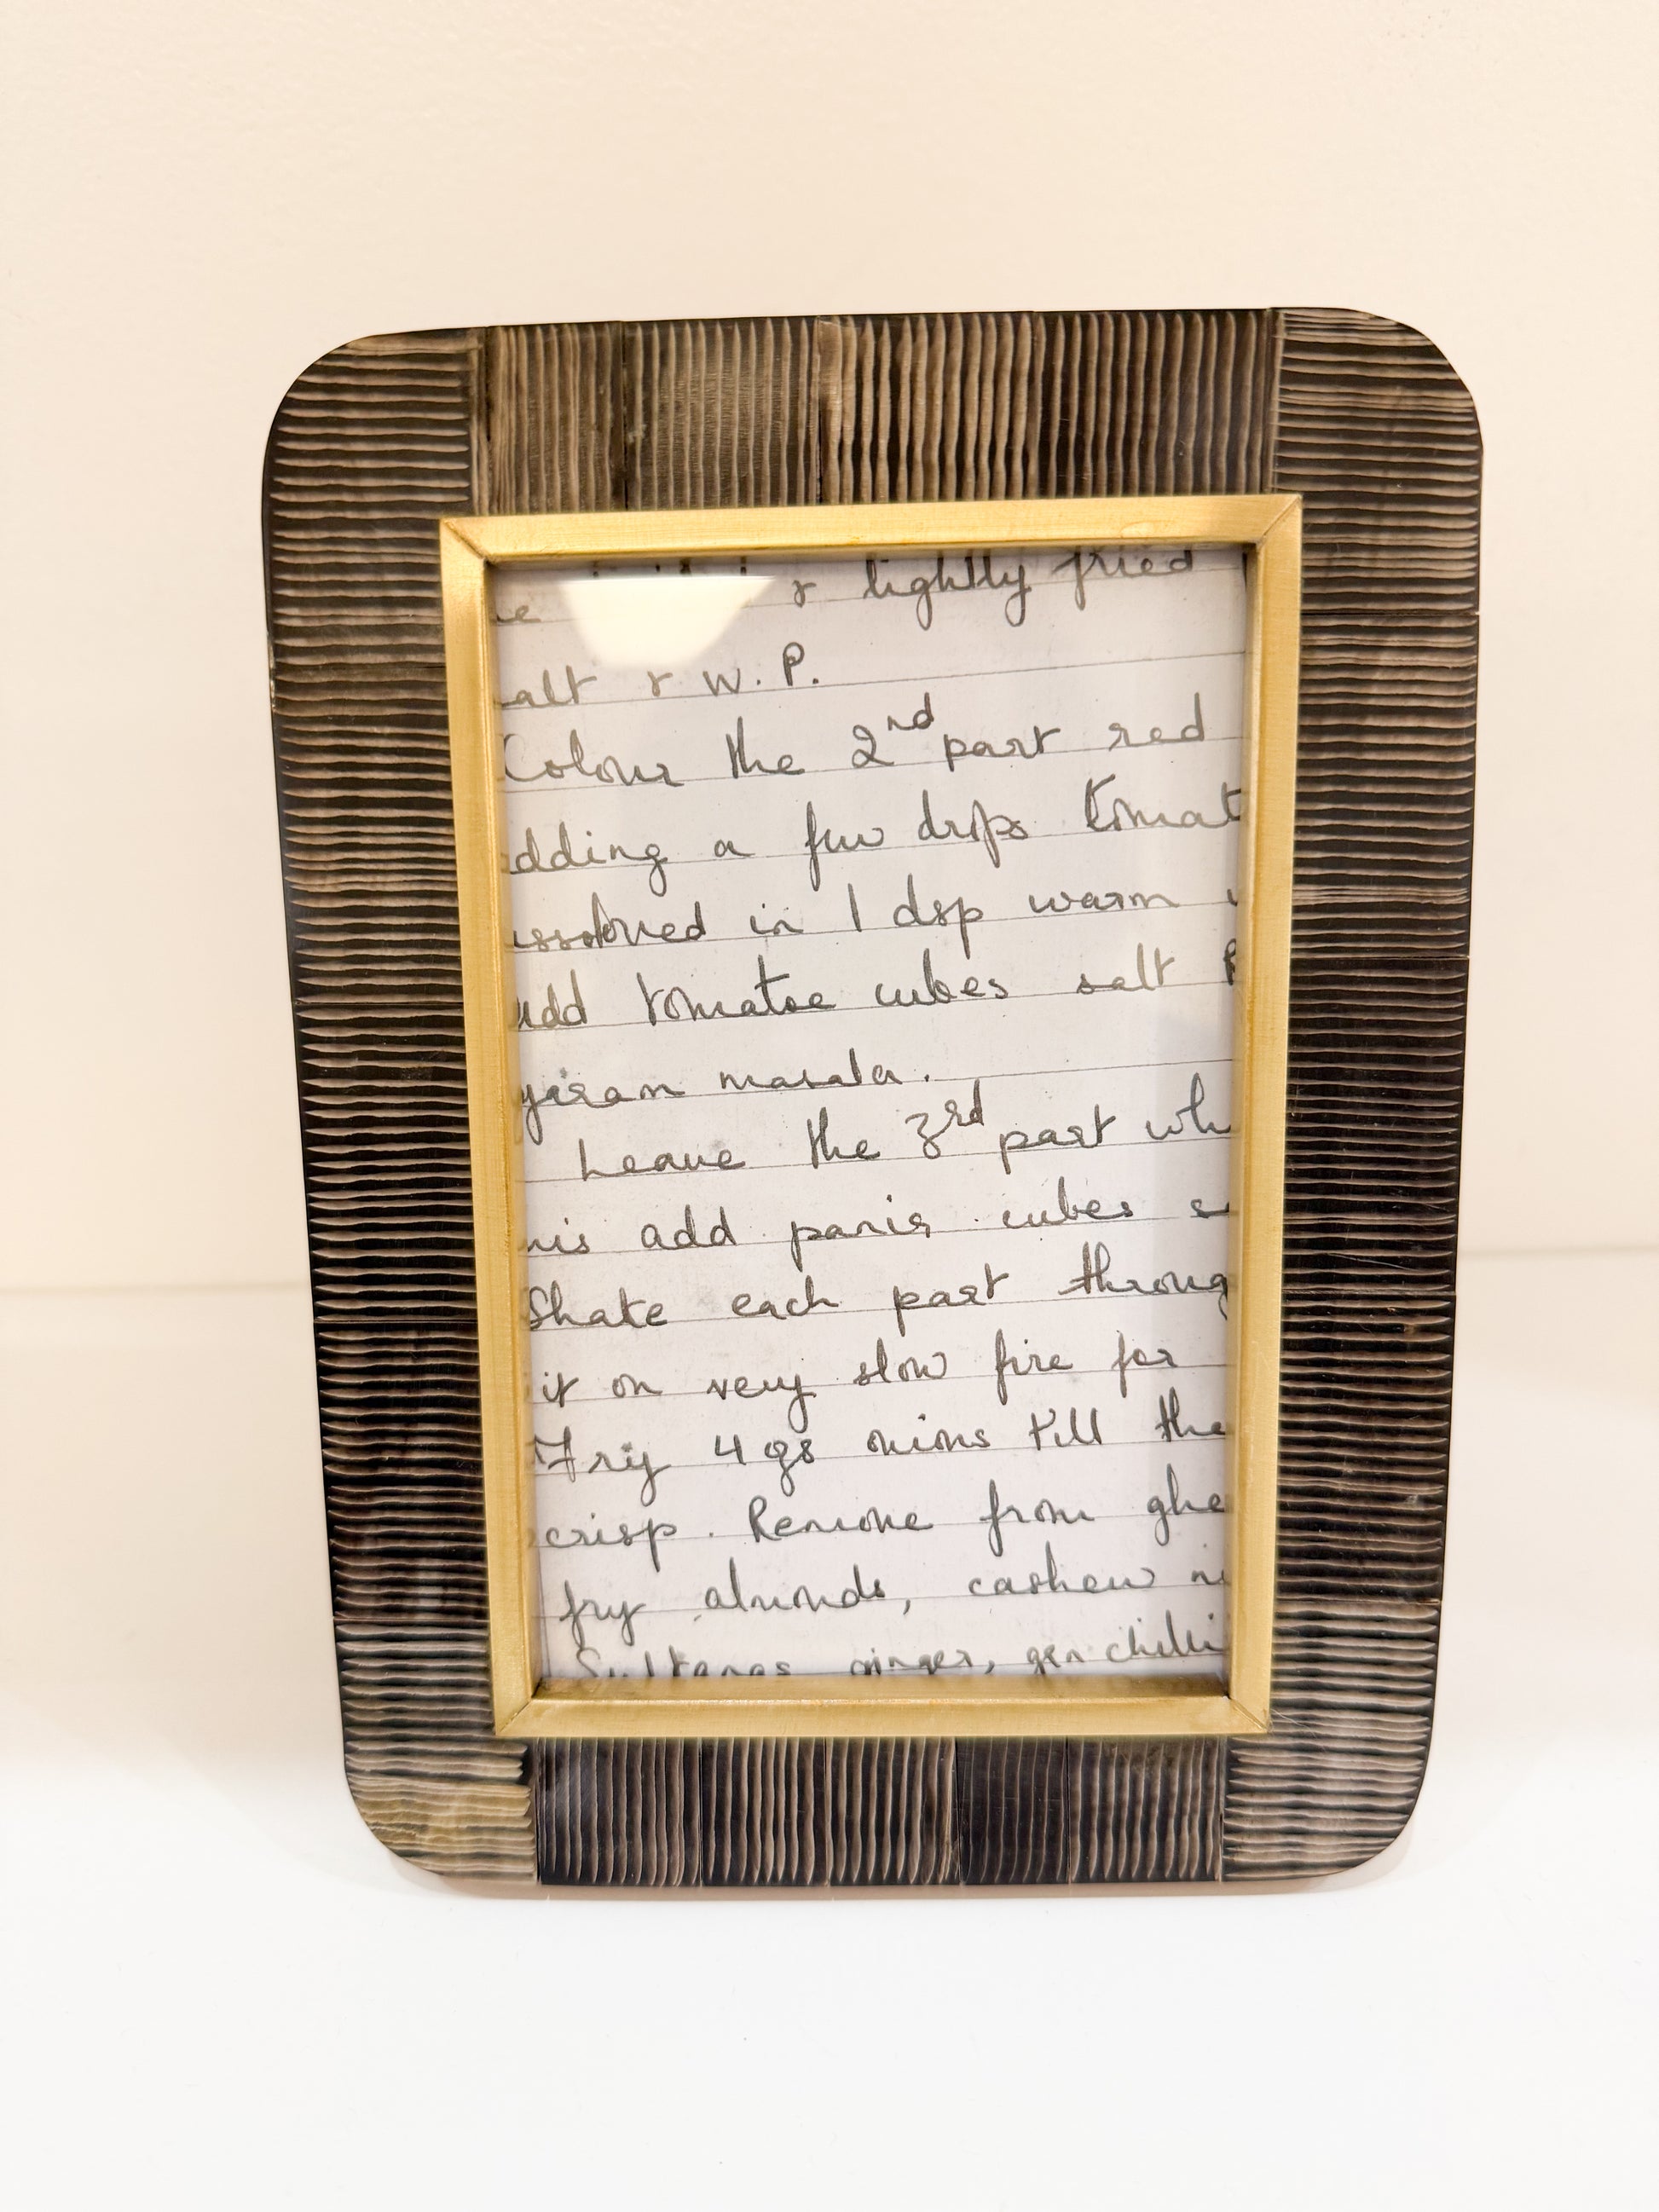 & lightly fried
alt & W. P.
Colour the 2nd part red
dding a few drops tomat
issolved in 1 dsp warm
add tomatoe cubes salt
garam masala.
Leave the 3rd part wh
his add panir cubes s
Shake each part throug
it on very slow fire for
Fry 4 gs onions till the
crisp. Remove from ghe
fry almonds, cashew n
Sultanas ginger, gen chilli